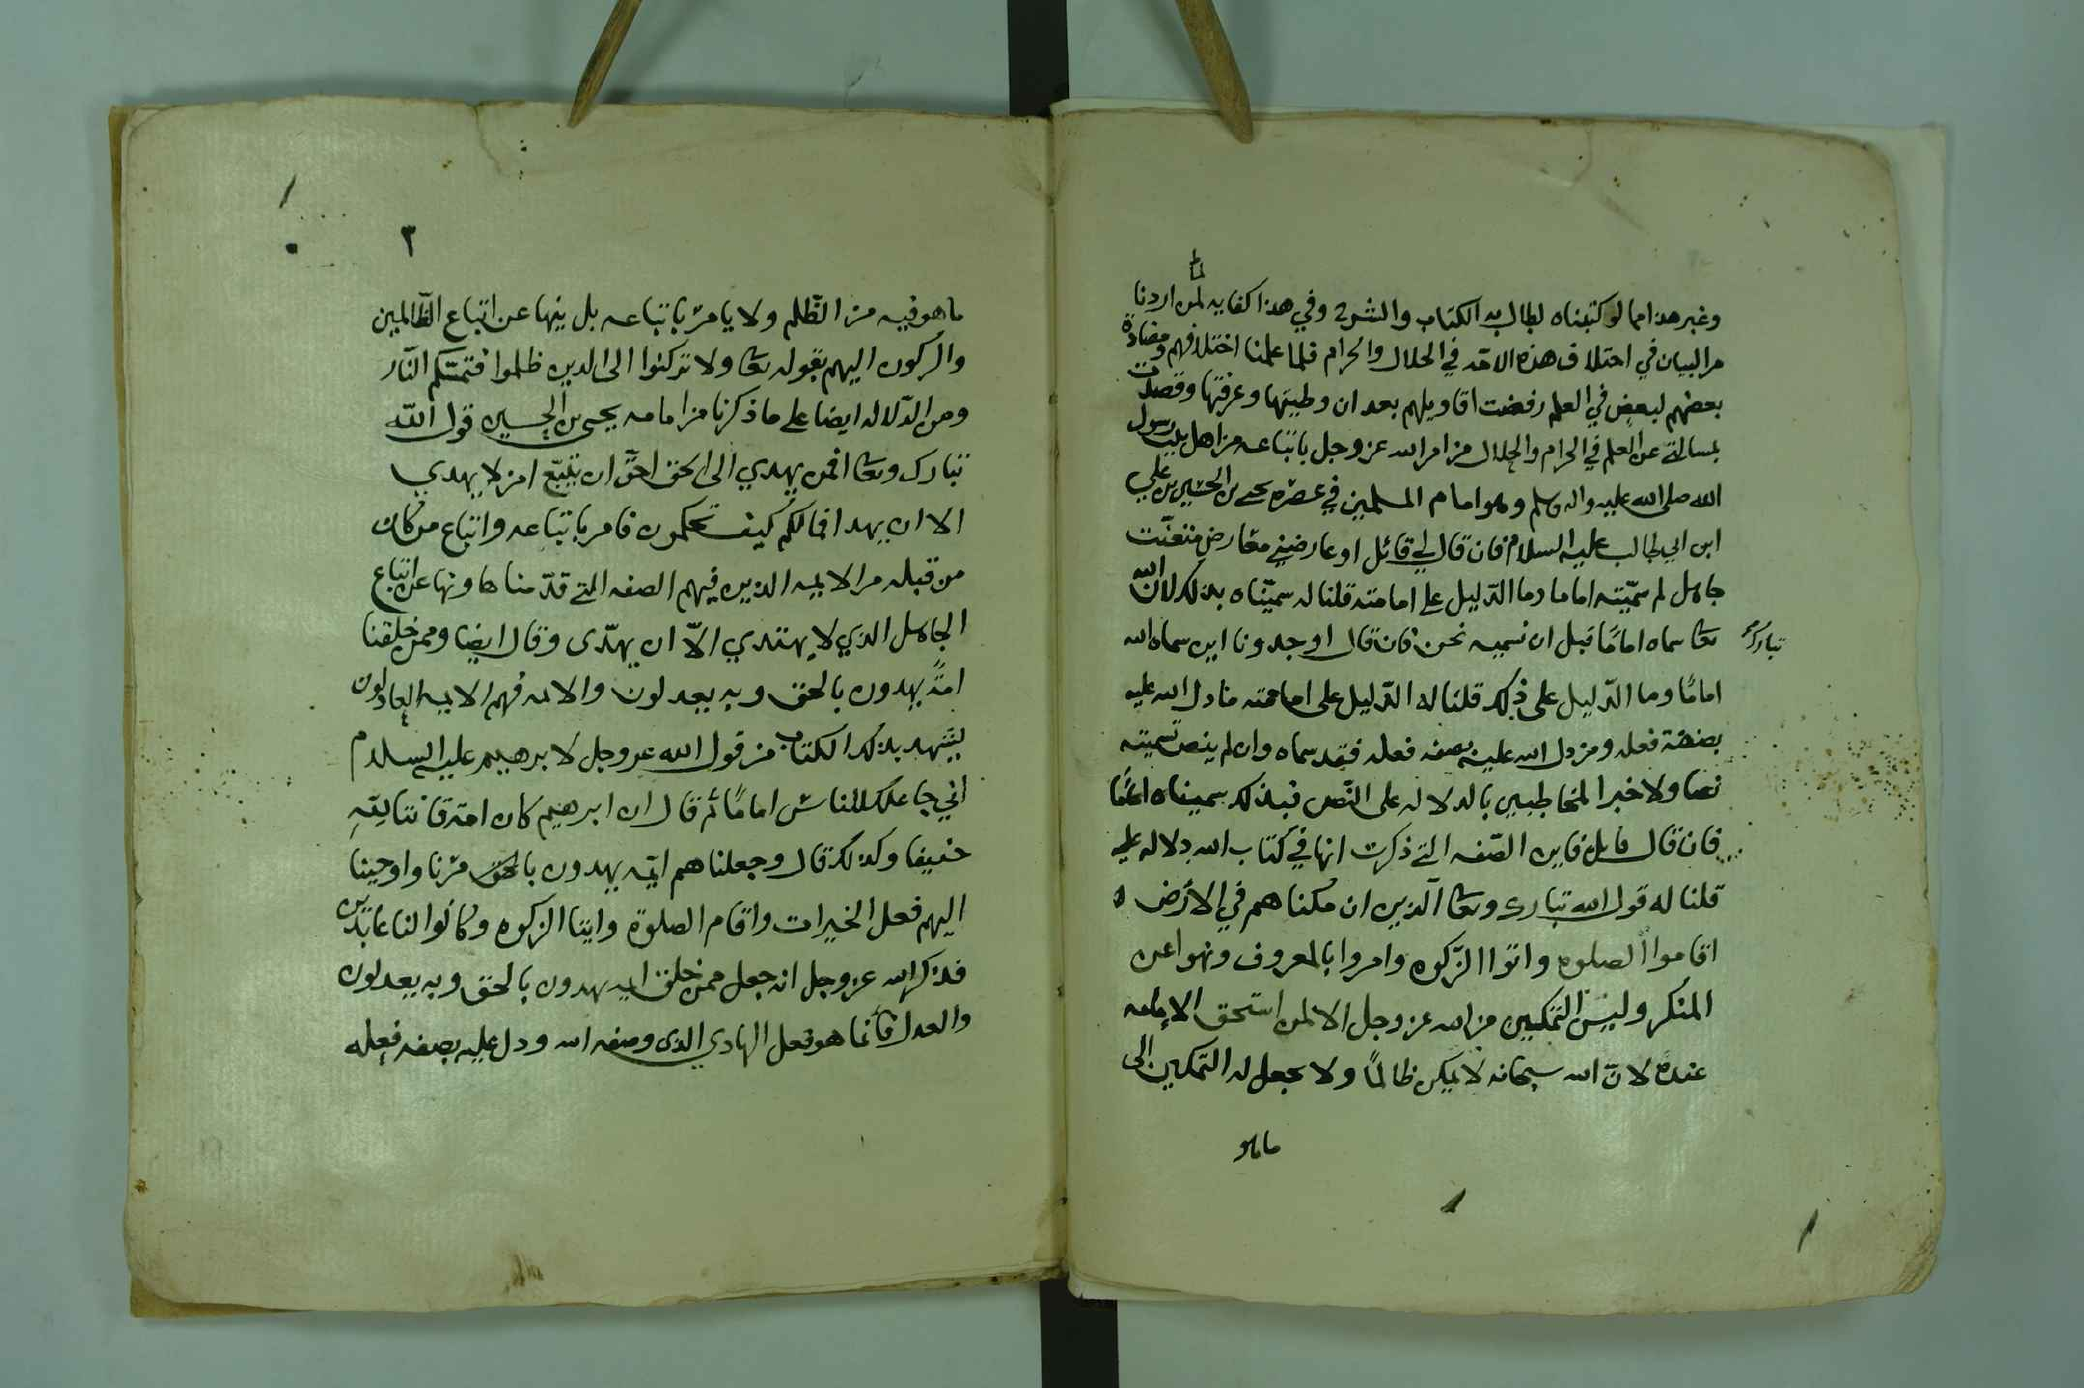 وغير هذا مما لو كتبناه لطال به الكتاب والشرح وفي هذا كفايه لمن اردنا
لما
من البيان في اختلاف هذه الامّه في الحلال والحرام فلما علمنا اختلافهم ومضادة
بعضهم لبعض في العلم رفضت اقاويلهم بعد ان وطيتها وعرفتها وقصدت
بمسالتي عن العلم في الحرام والحلال من امر الله عز وجل باتباعه من اهل بيت رسول
الله صلى الله عليه واله وسلم وهو امام المسلمين في عصره يحيى بن الحسين بن علي
ابن ابي طالب عليه السلام فان قال لي قائل او عارضني معارض متعنّت
جاهل لم سمّيته اماما وما الدّليل على امامته قلنا له سمّيناه بذلك لان الله
تبارك و
تعا سماه امامًا قبل ان نسميه نحن فان قال اوجدونا اين سماه الله
امامًا وما الدّليل على ذلك قلنا له الدّليل على امامته ما دل الله عليه
بصفة فعله ومن دل الله عليه بصفه فعله فقد سماه وان لم ينص تسميته
نصا ولاخبر المخاطبين بالدلاله على النّص فبذلك سميناه امامًا
فان قال قايل فاين الصّفه التي ذكرت انها في كتاب الله دلاله عليه
قلنا له قول الله تبارك وتعا الّذين ان مكناهم في الارض
اقاموا الصلوه واتوا الزّكوه وامروا بالمعروف ونهوا عن
المنكر وليس التمكين من الله عز وجل الا لمن استحق الامامه
عنده لان الله سبحانه لا يمكن ظالمًا ولا يجعل له التمكين الى
ماهو
٣
ماهو فيه من الظّلم ولا يامر باتباعه بل ينها عن اتباع الظّالمين
والركون اليهم بقوله تعا ولا تركنوا الى الذين ظلموا فتمسّكم النّار
ومن الدّلاله ايضا على ما ذكرنا من امامه يحيى بن الحسين قول الله
تبارك وتعا افمن يهدي الى الحق احقّ ان يتّبع امن لا يهدي
الا ان يهدا فمالكم كيف تحكمون فامر باتباعه واتباع من كان
من قبله من الايمه الذين فيهم الصفه التي قدّمناها ونها عن اتباع
الجاهل الذي لا يهتدي الاّ ان يهدّى وقال ايضا وممن خلقنا
امةً يهدون بالحق وبه يعدلون والامه فهم الايمه العادلون
يشهد بذلك الكتاب من قول الله عز وجل لابرهيم عليه السلام
اني جاعلك للناس امامًا ثم قال ان ابرهيم كان امة قانتا للّهِ
حنيفا وكذلك قال وجعلناهم ايمّه يهدون بالحق مرنا واوحينا
اليهم فعل الخيرات واقام الصلوة وايتا الزكوه وكانوا لنا عابدين
فذكر الله عز وجل انه جعل ممن خلق ايمه يهدون بالحق وبه يعدلون
والعدل فانما هو فعل الهادي الذى وصفه الله ودل عليه بصفه فعله